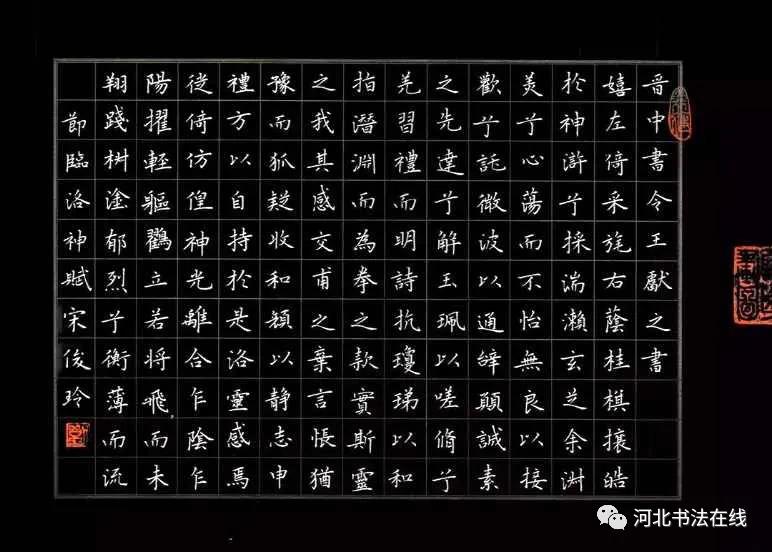 晋中書令王獻之書
嬉左倚采旄右蔭桂棋攘皓
於神滸兮採湍瀨玄芝余淑
美兮心蕩而不怡無良以接
歡兮託微波以通辭願誠素
之先達兮解玉珮以嗟脩兮
羌習禮而明詩抗瓊珶以和
指潛淵而為拳之款實斯靈
之我其感交甫之棄言悵猶
豫而狐疑收和顏以静志申
禮方以自持於是洛靈感焉
徙倚仿偟神光離合乍陰乍
陽擢輕軀鸛立若將飛而未
翔踐椒塗郁烈兮衡薄而流
節臨洛神賦宋俊玲
河北书法在线